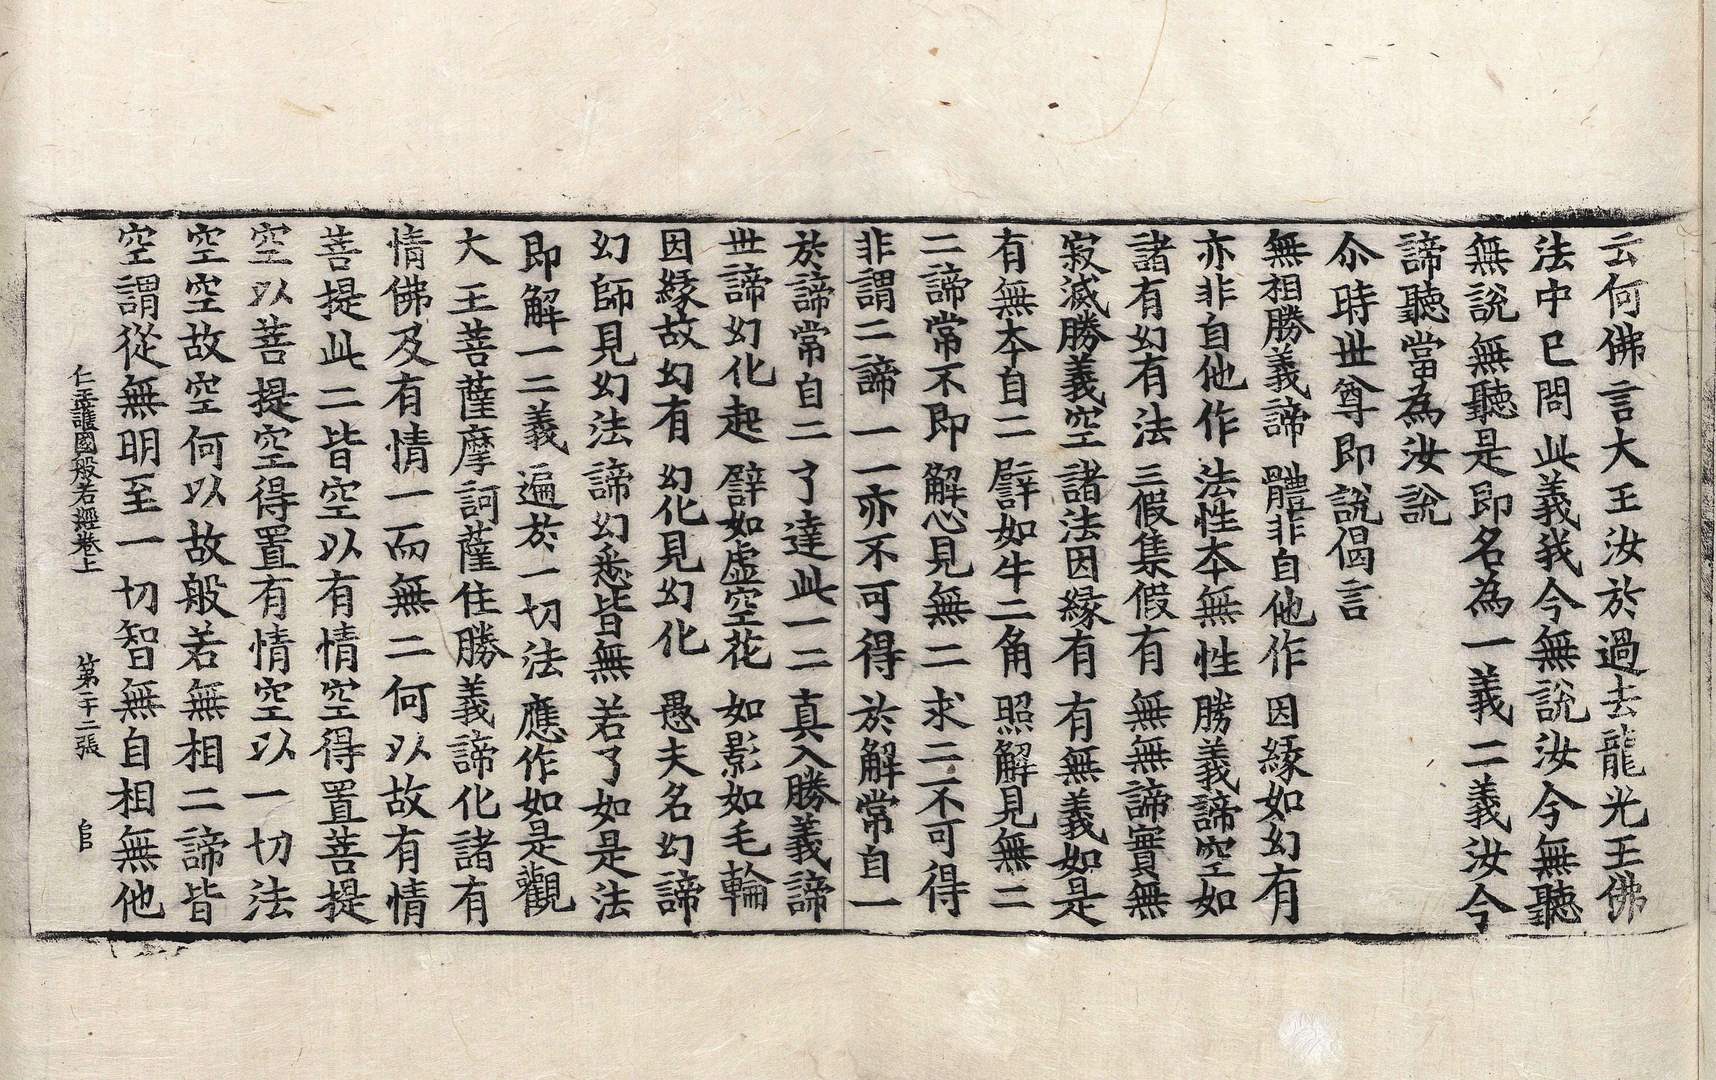 云何佛言大王汝於過去龍光王佛
法中已問此義我今無說汝今無聽
無說無聽是即名為一義二義汝今
諦聽當為汝說
尒時世尊即說偈言
無相勝義諦 體非自他作 因緣如幻有
亦非自他作 法性本無性 勝義諦空如
諸有幻有法 三假集假有 無無諦實無
寂滅勝義空 諸法因緣有 有無義如是
有無本自二 譬如牛二角 照解見無二
二諦常不即 解心見無二 求二不可得
非謂二諦一 一亦不可得 於解常自一
於諦常自二 了達此一二 真入勝義諦
世諦幻化起 譬如虛空花 如影如毛輪
因緣故幻有 幻化見幻化 愚夫名幻諦
幻師見幻法 諦幻悉皆無 若了如是法
即解一二義 遍於一切法 應作如是觀
大王菩薩摩訶薩住勝義諦化諸有
情佛及有情一而無二何以故有情
菩提此二皆空以有情空得置菩提
空以菩提空得置有情空以一切法
空空故空何以故般若無相二諦皆
空謂從無明至一切智無自相無他
仁王護國般若經卷上 第二十二張 𠂤